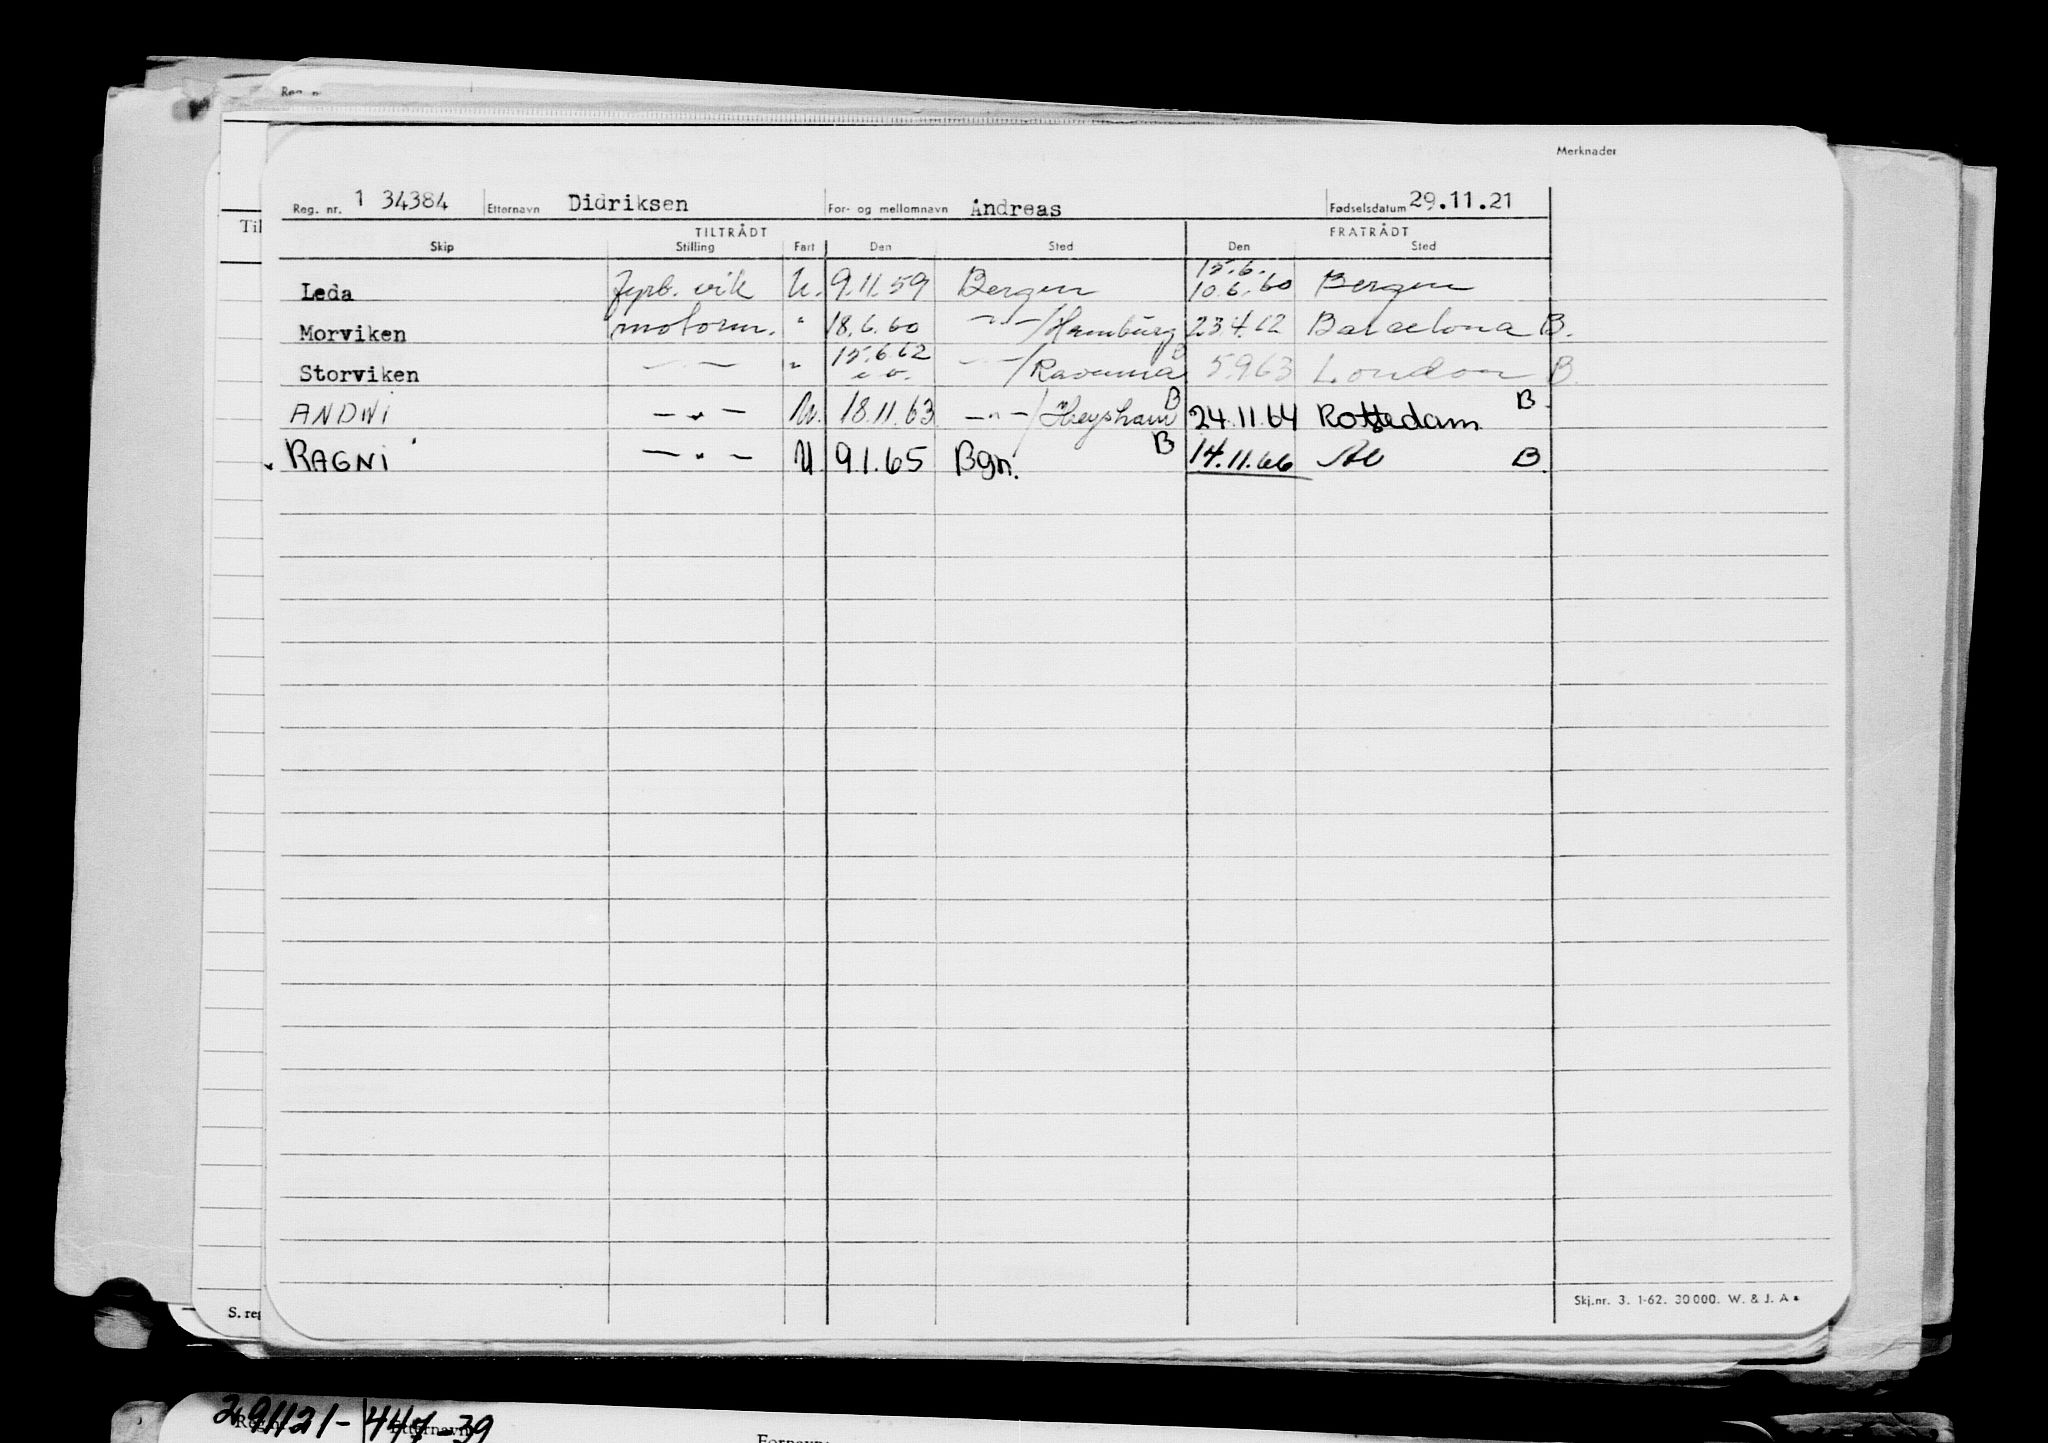 Merknader
Reg. nr. 1 34384 Etternavn Didriksen For- og mellomnavn Andreas Fødselsdatum 29.11.21
TILTRÅDT FRATRÅDT
Skip Stilling Fart Den Sted Den Sted
15.6.
Leda fyrb. vik U. 9.11.59 Bergen 10.6.60 Bergen
Morviken motorm. " 18.6.60 -"-/Hamburg 23.4.62 Barcelona B.
15.6.62 B
Storviken -"- " -"-/Ravenna 5.9.63 London B.
ANDWI -"- U. 18.11.63 -"-/Heysham B 24.11.64 Rotterdam B.
RAGNI -"- U 9.1.65 Bgn. B 14.11.66 B.
Skj.nr. 3. 1-62. 30 000. W. & J. A
Til
S. reg
291121-447-39
Etternavn
Fornavn